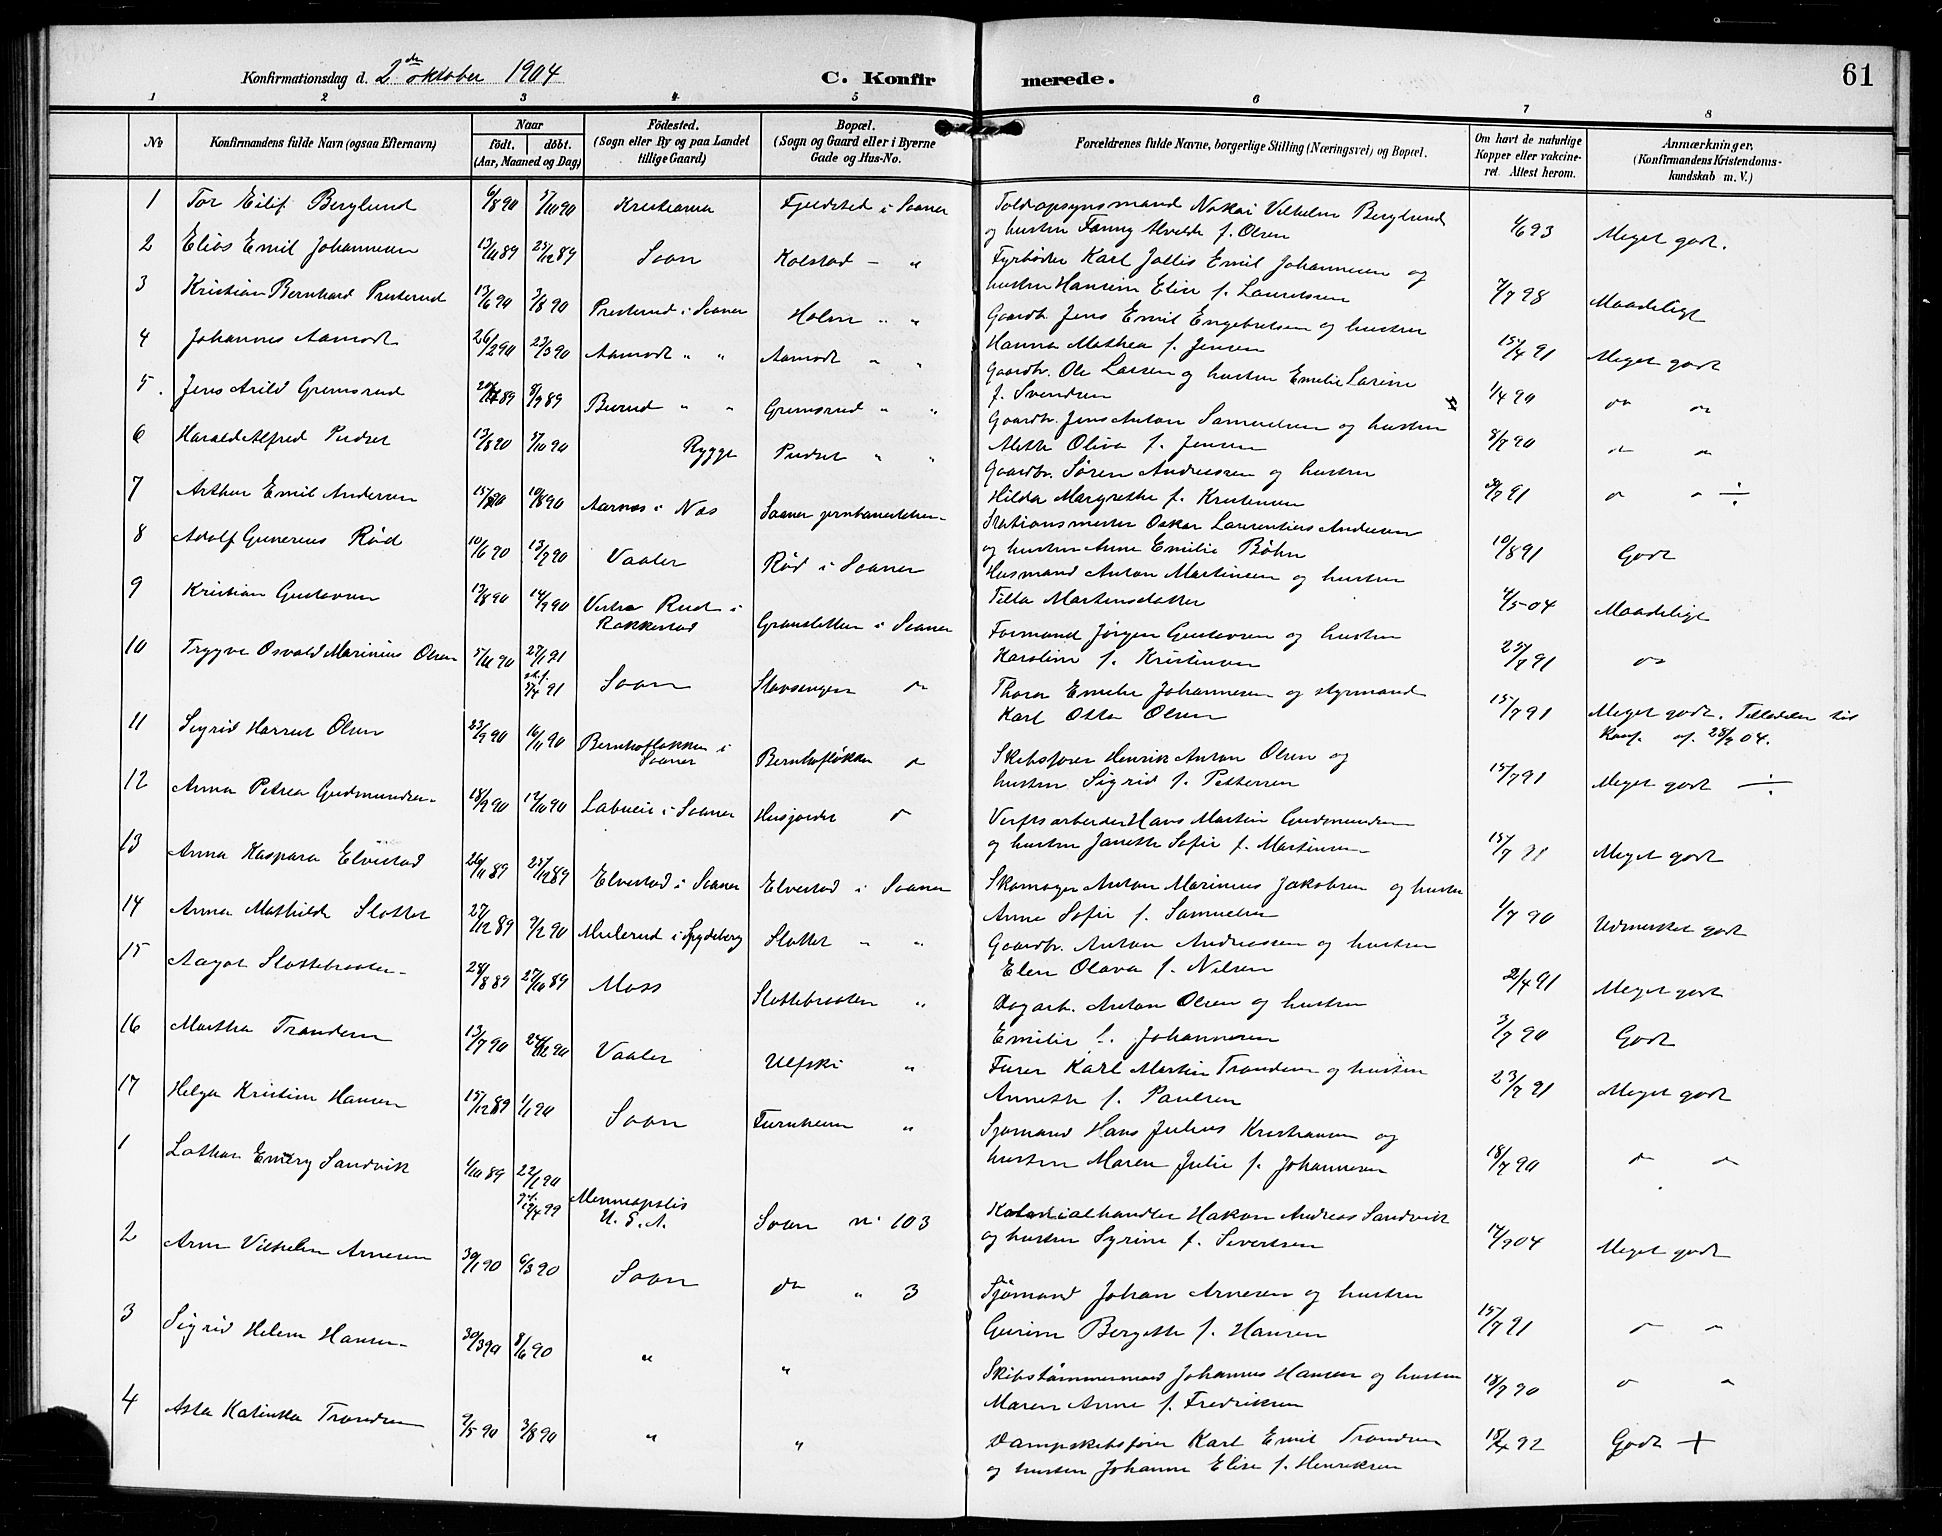 61
Konfirmationsdag d. 2den oktober 1904
C. Konfirmerede.
1 2 3 4 5 6 7 8
No
Konfirmandens fulde Navn (ogsaa Efternavn)
Naar
födt. döbt.
(Aar, Maaned og Dag)
Födested.
(Sogn eller By og paa Landet
tillige Gaard)
Bopæl.
(Sogn og Gaard eller i Byerne
Gade og Hus-No.
Forældrenes fulde Navne, borgerlige Stilling (Næringsvei) og Bopæl.
Om havt de naturlige
Kopper eller vakcine-
ret. Attest herom.
Anmærkninger.
(Konfirmandens Kristendoms-
kundskab m. V.)
1 Tor Eilif Berglund 6/8 90 5/10 90 Kristiania Fjeldsted i Saaner
Toldopsynsmand Vilhelm Berglund
og hustru Fanny Alvilde f. Olsen 1/6 93 Meget godt.
2 Elias Emil Johannesen 13/11 89 25/12 89 Soon Kolstad - "
Fyrböder Karl Emil Johannesen og
hustru Hansine Elise f. Lauritsen 7/7 98 Maadeligt
3 Kristian Bernhard Presterud 13/6 90 3/8 90 Presterud i Saaner Holm " "
Gaardbr. Jens Emil Engebretsen og hustru
Hanna Mathea f. Jensen 15/4 91 Meget godt
4 Johannes Aamodt 26/2 90 23/3 90 Aamodt " " Aamodt " "
Gaardbr. Ole Larsen og hustru Emelie Larine
f. Svendsen 1/4 90 do do
5. Jens Arild Gremsrud 89 8/9 89 Burud " " Gremsrud " "
Gaardbr. Jens Anton Samuelsen og hustru
Alette Oliva f. Jensen 8/7 90 do do
6 Harald Alfred Pudset 13/8 90 5/10 90 Rygge Pudset " "
Gaardbr. Søren Andreassen og hustru
Hilda Margrethe f. Kristensen 91 do do ÷
7 Arthur Emil Andersen 15/ 90 10/8 90 Aarnes i Næs Saaner jernbanestation
Stationsmester Oskar Laurentius Andersen
og hustru Anne Emilie Bøhn 10/8 91 Godt
8 Adolf Gunerius Rød 10/6 90 13/7 90 Vaaler Rød i Saaner
Husmand Anton Martinsen og hustru
Tilla Martinsdatter 4/5 04 Maadeligt
9 Kristian Gustavsen 13/8 90 14/9 90 Vestre Rud i
Rakkestad Gransletten i Saaner
Formand Jörgen Gustavsen og hustru
Karoline f. Kristensen 25/7 91 do
10 Trygve Osvald Marinius Olsen 5/11 90 27/1 91
st.f.
5/4 91 Soon Slavsengen do
Thora Emilie Johannesen og styrmand
Karl Otto Olsen 15/7 91 Meget godt. Tilladelse til
Konf. af 28/9 04.
11 Sigrid Harriet Olsen 23/9 90 16/11 90 Bernhofløkken i
Saaner Bernhofløkken do
Skibsfører Henrik Anton Olsen og
hustru Sigrid f. Pettersen 15/7 91 Meget godt ÷
12 Anna Petrea Gudmundsen 18/9 90 12/10 90 Labueie i Saaner Husjordet do
Verftsarbeider Hans Martin Gudmundsen
og hustru Janette Sofie f. Martinsen 15/7 91 Meget godt
13 Anna Kaspara Elvestad 26/11 89 25/12 89 Elvestad i Saaner Elvestad i Saaner
Skomager Anton Marinius Jakobsen og hustru
Anne Sofie f. Samuelsen 1/7 90 Udmerket godt
14 Anna Mathilde Slottet 27/12 89 9/2 90 Mulerud i Spydeberg Slottet " "
Gaardbr. Anton Andreassen og hustru
Elen Olava f. Nilsen 2/7 91 Meget godt
15 Aagot Slottebraaten 28/8 89 27/10 89 Moss Slottebraaten "
Dagarb. Anton Olsen og hustru
Emilie f. Johannesen 3/7 90 Godt
16 Martha Trandem 13/7 90 90 Vaaler Ulfski "
Furer Karl Martin Trandem og hustru
Annette f. Paulsen 23/7 91 Meget godt
17 Helga Kristine Hansen 15/12 89 1/1 90 Soon Furuheim "
Sjømand Hans Julius Kristiansen og
hustru Maren Julie f. Johannesen 18/7 90 do do
1 Lothar Emery Sandvik 1/10 89 22/1 90
4/4 99 Menneapolis
U.S.A. Soon No 103
Kolonialhandler Hakon Andreas Sandvik
og hustru Syrine f. Severtsen 14/9 04 Meget godt
2 Arne Vilhelm Arnesen 30/1 90 6/3 90 Soon do " 3
Sjömand Johan Arnesen og hustru
Gurine Bergette f. Hansen 15/7 91 do do
3 Sigrid Helene Hansen 30/3 90 8/6 90 " "
Skibstömmermand Johannes Hansen og hustru
Maren Anne f. Fredriksen 18/7 90 do do
4 Asta Katinka Trondsen 9/5 90 3/8 90 " "
Dampskibsfører Karl Emil Trondsen
og hustru Johanne Elise f. Henriksen 92 Godt +